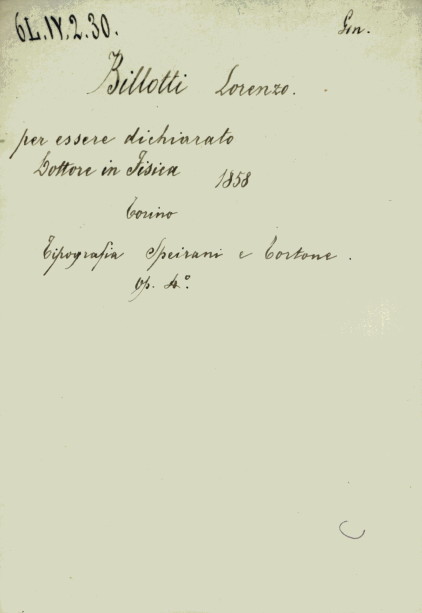 6L.IV.2.30. Gen.
Billotti Lorenzo.
per essere dichiarato
Dottore in Fisica 1858
Torino
Tipografia Speirani e Tortone.
Op. 4°.